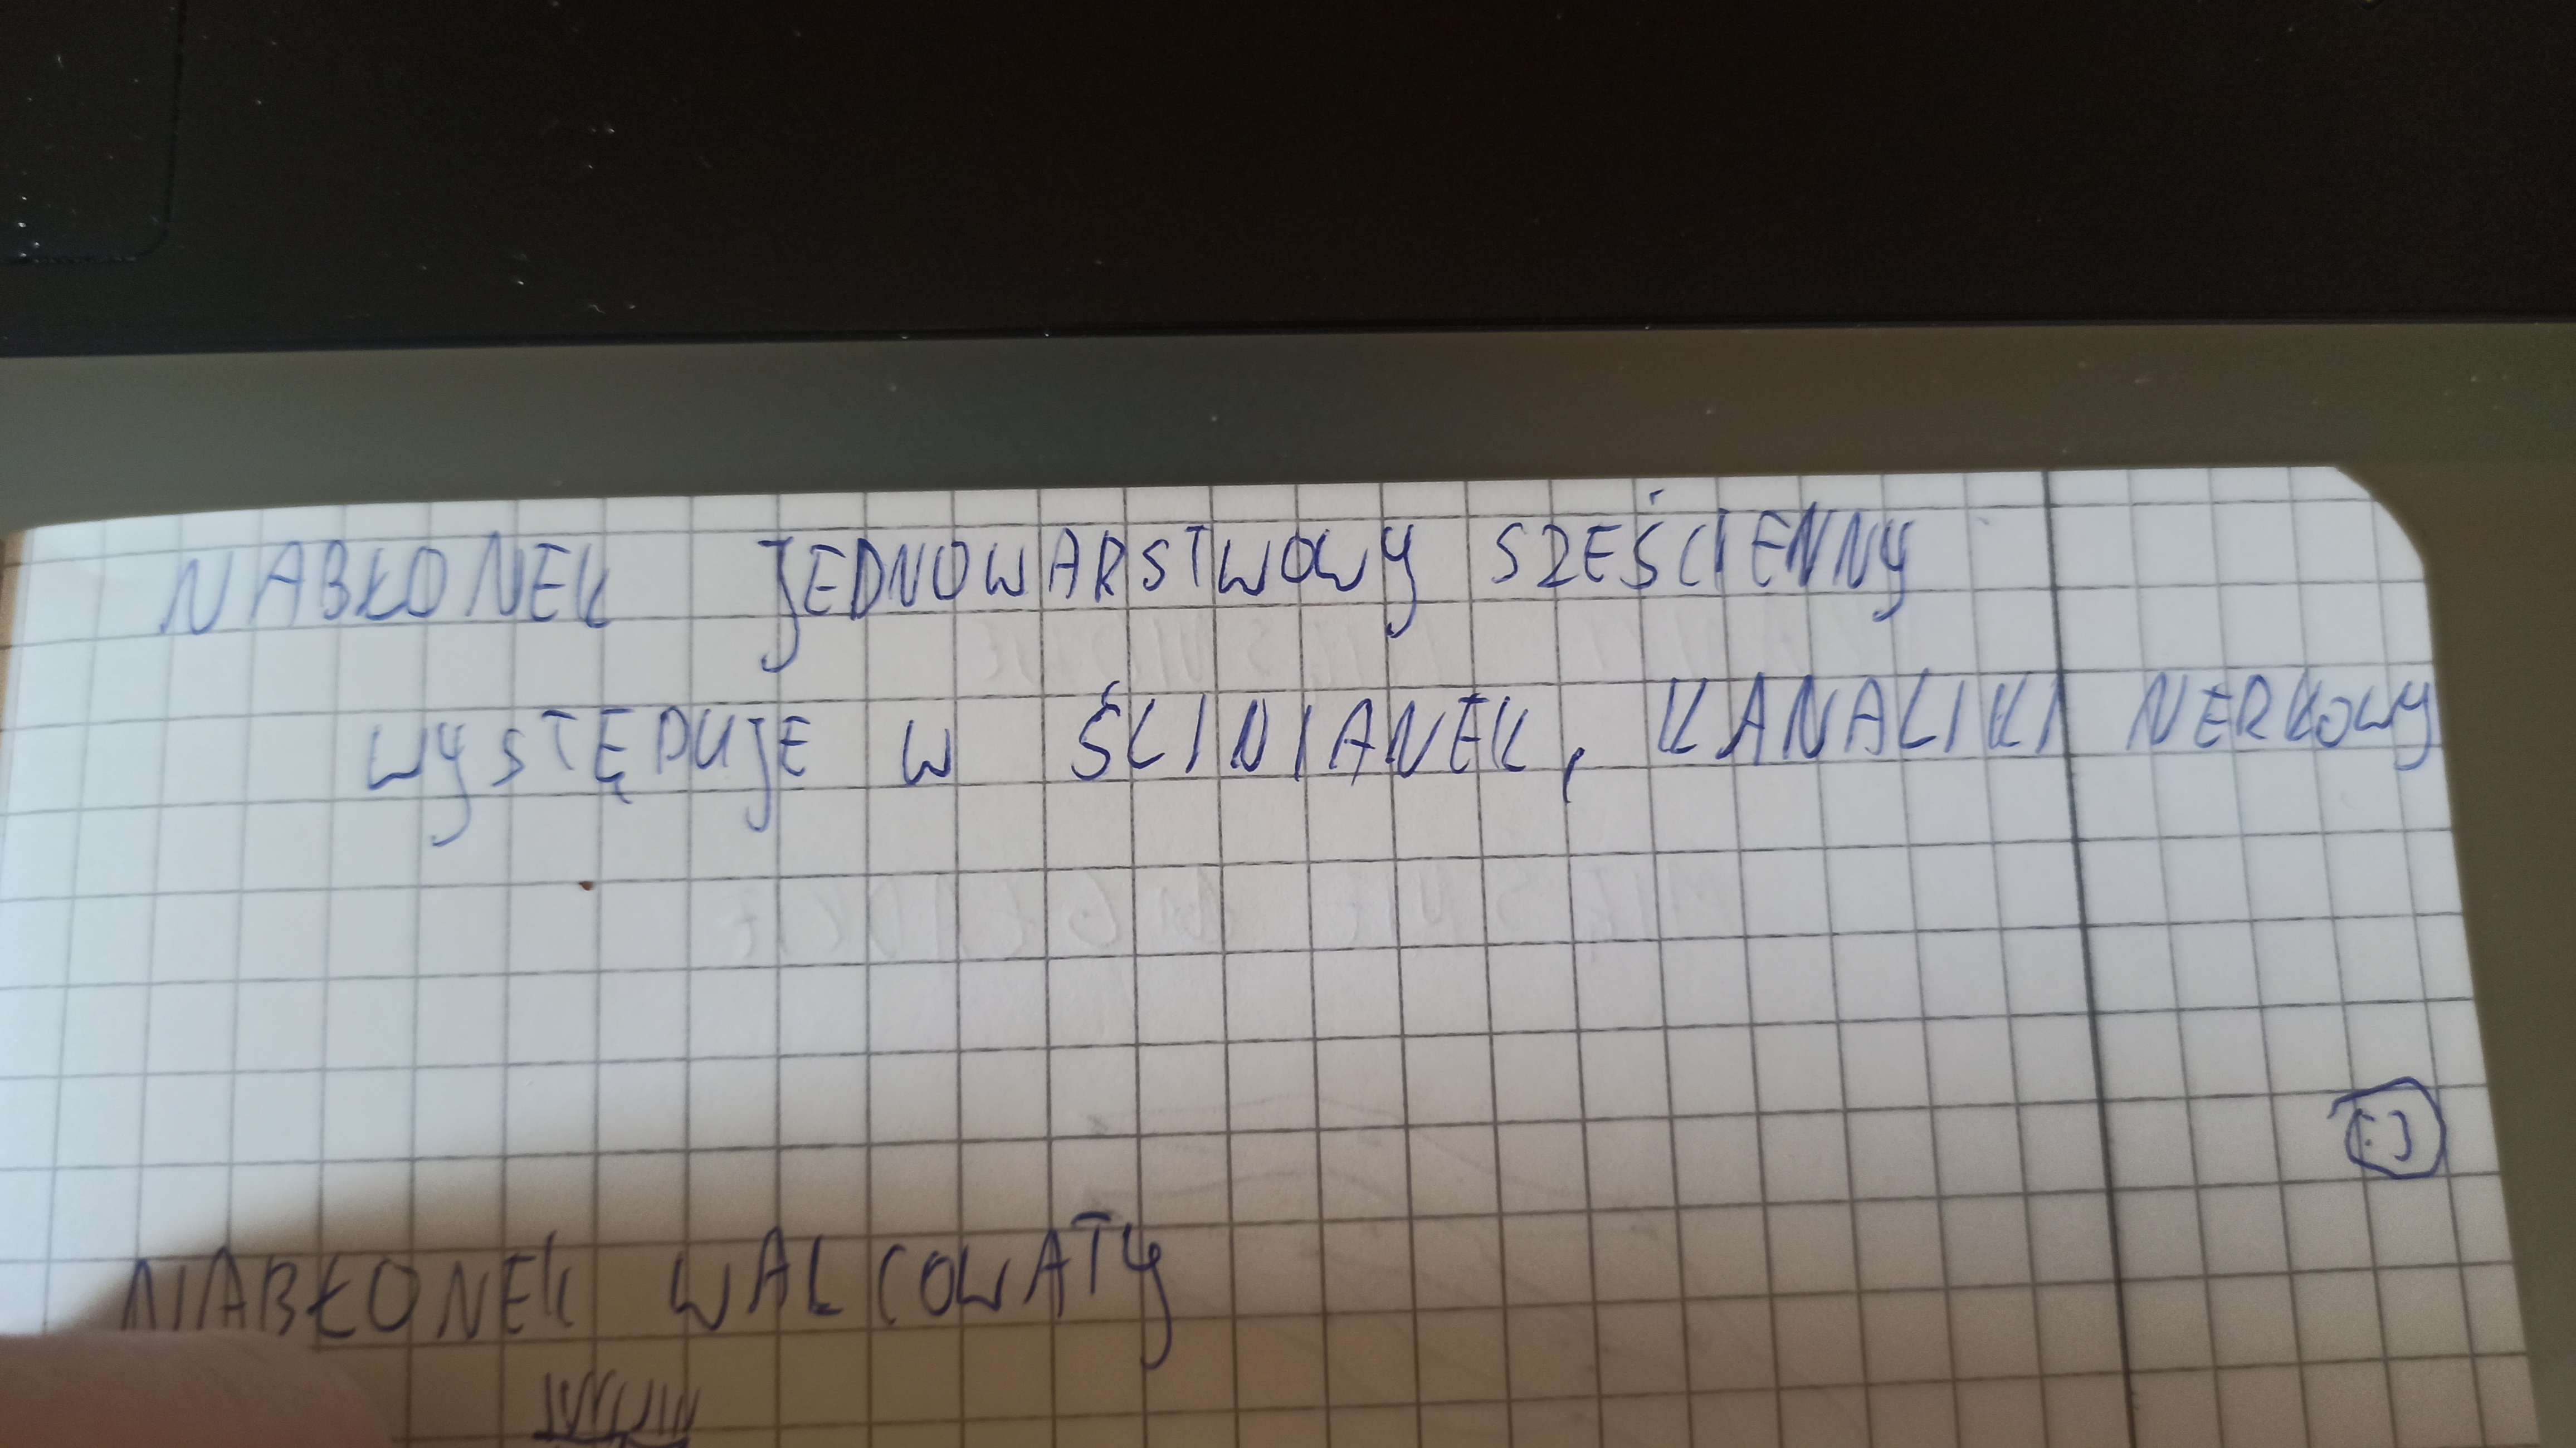 NABŁONEK JEDNOWARSTWOWY SZEŚCIENNY
WYSTĘPUJE W ŚLINIANEK, KANALIKI NERKOWY
NABŁONEK WALCOWATY